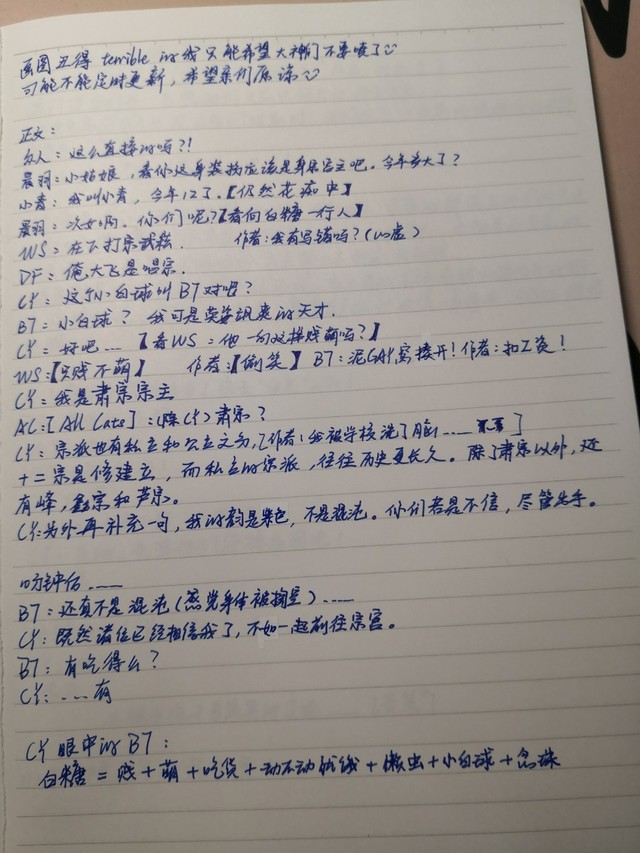 画图丑得 terrible 的我只能希望大神们不要喷了
可能不能定时更新，希望亲们原谅
正文：
众人：这么直接的吗？！
晨羽：小姑娘，看你这身装扮应该是身宗宗主吧。今年多大了？
小青：我叫小青，今年12了。【仍然花痴中】
晨羽：次女啊。你们呢？【看向白糖一行人】
WS：在下打宗武崧。 作者：我有写错吗？（心虚）
DF：俺大飞是唱宗。
CY：这个小白球叫BT对吧？
BT：小白球？我可是英姿飒爽的天才。
CY：好吧……【看WS：他一向这样贱萌吗？】
WS：【只贱不萌】 作者：【偷笑】 BT：泥GAY窝揍开！作者：扣工资！
CY：我是肃宗宗主
AC：[All Cats]：（除CY）肃宗？
CY：宗派也有私立和公立之分，[作者：我被学校洗了脑……]
十二宗是修建立，而私立的宗派，往往历史更长久。除了肃宗以外，还
有峰，鑫宗和芦宗。
CY：另外再补充一句，我的韵是紫色，不是混沌。你们若是不信，尽管出手。
10分钟后……
BT：还真不是混沌（感觉身体被掏空）……
CY：既然诸位已经相信我了，不如一起前往宗宫。
BT：有吃得么？
CY：……有
CY眼中的BT：
白糖 = 贱 + 萌 + 吃货 + 动不动就饿 + 懒虫 + 小白球 + 念珠